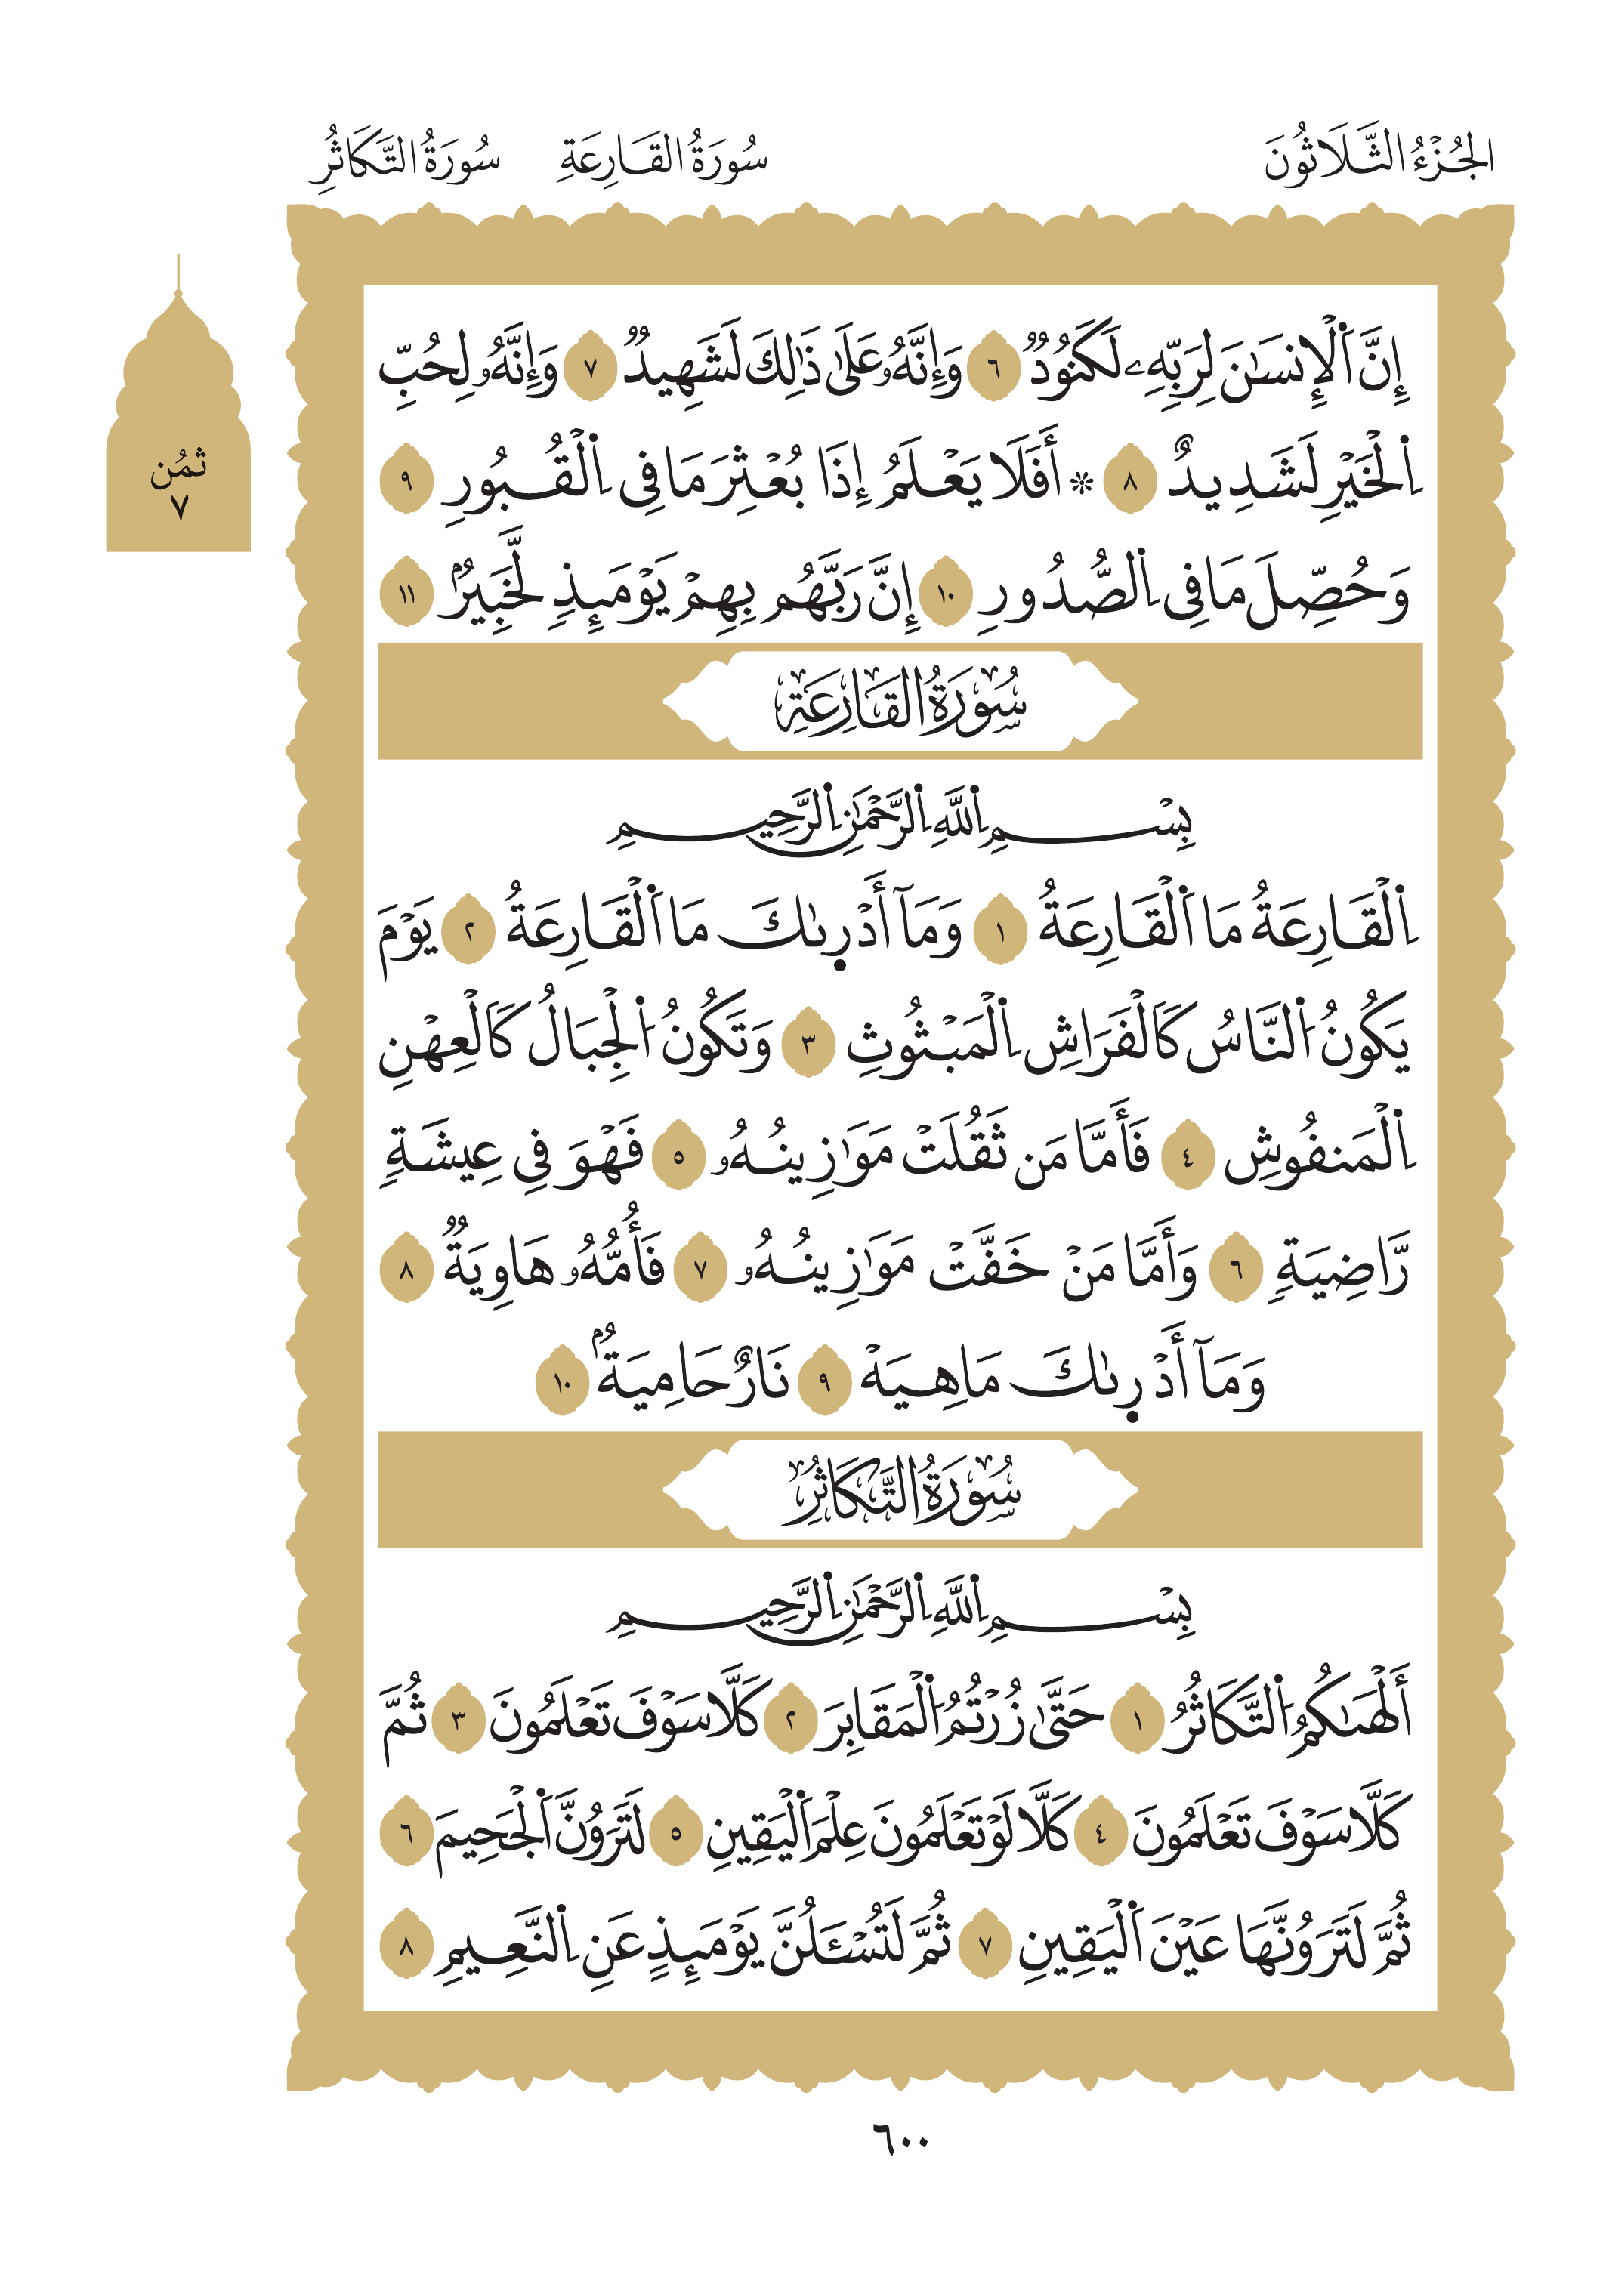 الجُزْءُ الثَّلَاثُونَ سُورَةُ القَارِعَةِ سُورَةُ التَّكَاثُرِ
ثُمُن
٧
إِنَّ اَ۬لْإِنسَٰنَ لِرَبِّهِۦ لَكَنُودٞ ٦ وَإِنَّهُۥ عَلَىٰ ذَٰلِكَ لَشَهِيدٞ ٧ وَإِنَّهُۥ لِحُبِّ
اِ۬لْخَيْرِ لَشَدِيدٌ ٨ ۞ أَفَلَا يَعْلَمُ إِذَا بُعْثِرَ مَا فِي اِ۬لْقُبُورِ ٩
وَحُصِّلَ مَا فِي اِ۬لصُّدُورِ ١٠ إِنَّ رَبَّهُم بِهِمْ يَوْمَئِذٖ لَّخَبِيرُۢ ١١
سُورَةُ القَارِعَةِ
بِسْمِ اِ۬للَّهِ اِ۬لرَّحْمَٰنِ اِ۬لرَّحِيمِ
اِ۬لْقَارِعَةُ مَا اَ۬لْقَارِعَةُ ١ وَمَآ أَدْر۪ىٰكَ مَا اَ۬لْقَارِعَةُ ٢ يَوْمَ
يَكُونُ اُ۬لنَّاسُ كَالْفَرَاشِ اِ۬لْمَبْثُوثِ ٣ وَتَكُونُ اُ۬لْجِبَالُ كَالْعِهْنِ
اِ۬لْمَنفُوشِ ٤ فَأَمَّا مَن ثَقُلَتْ مَوَٰزِينُهُۥ ٥ فَهْوَ فِي عِيشَةٖ
رَّاضِيَةٖ ٦ وَأَمَّا مَنْ خَفَّتْ مَوَٰزِينُهُۥ ٧ فَأُمُّهُۥ هَاوِيَةٞ ٨
وَمَآ أَدْر۪ىٰكَ مَا هِيَهْ ٩ نَارٌ حَامِيَةُۢ ١٠
سُورَةُ التَّكَاثُرِ
بِسْمِ اِ۬للَّهِ اِ۬لرَّحْمَٰنِ اِ۬لرَّحِيمِ
أَلْهَىٰكُمُ اُ۬لتَّكَاثُرُ ١ حَتَّىٰ زُرْتُمُ اُ۬لْمَقَابِرَ ٢ كَلَّا سَوْفَ تَعْلَمُونَ ٣ ثُمَّ
كَلَّا سَوْفَ تَعْلَمُونَ ٤ كَلَّا لَوْ تَعْلَمُونَ عِلْمَ اَ۬لْيَقِينِ ٥ لَتَرَوُنَّ اَ۬لْجَحِيمَ ٦
ثُمَّ لَتَرَوُنَّهَا عَيْنَ اَ۬لْيَقِينِ ٧ ثُمَّ لَتُسْـَٔلُنَّ يَوْمَئِذٍ عَنِ اِ۬لنَّعِيمِ ٨
٦٠٠